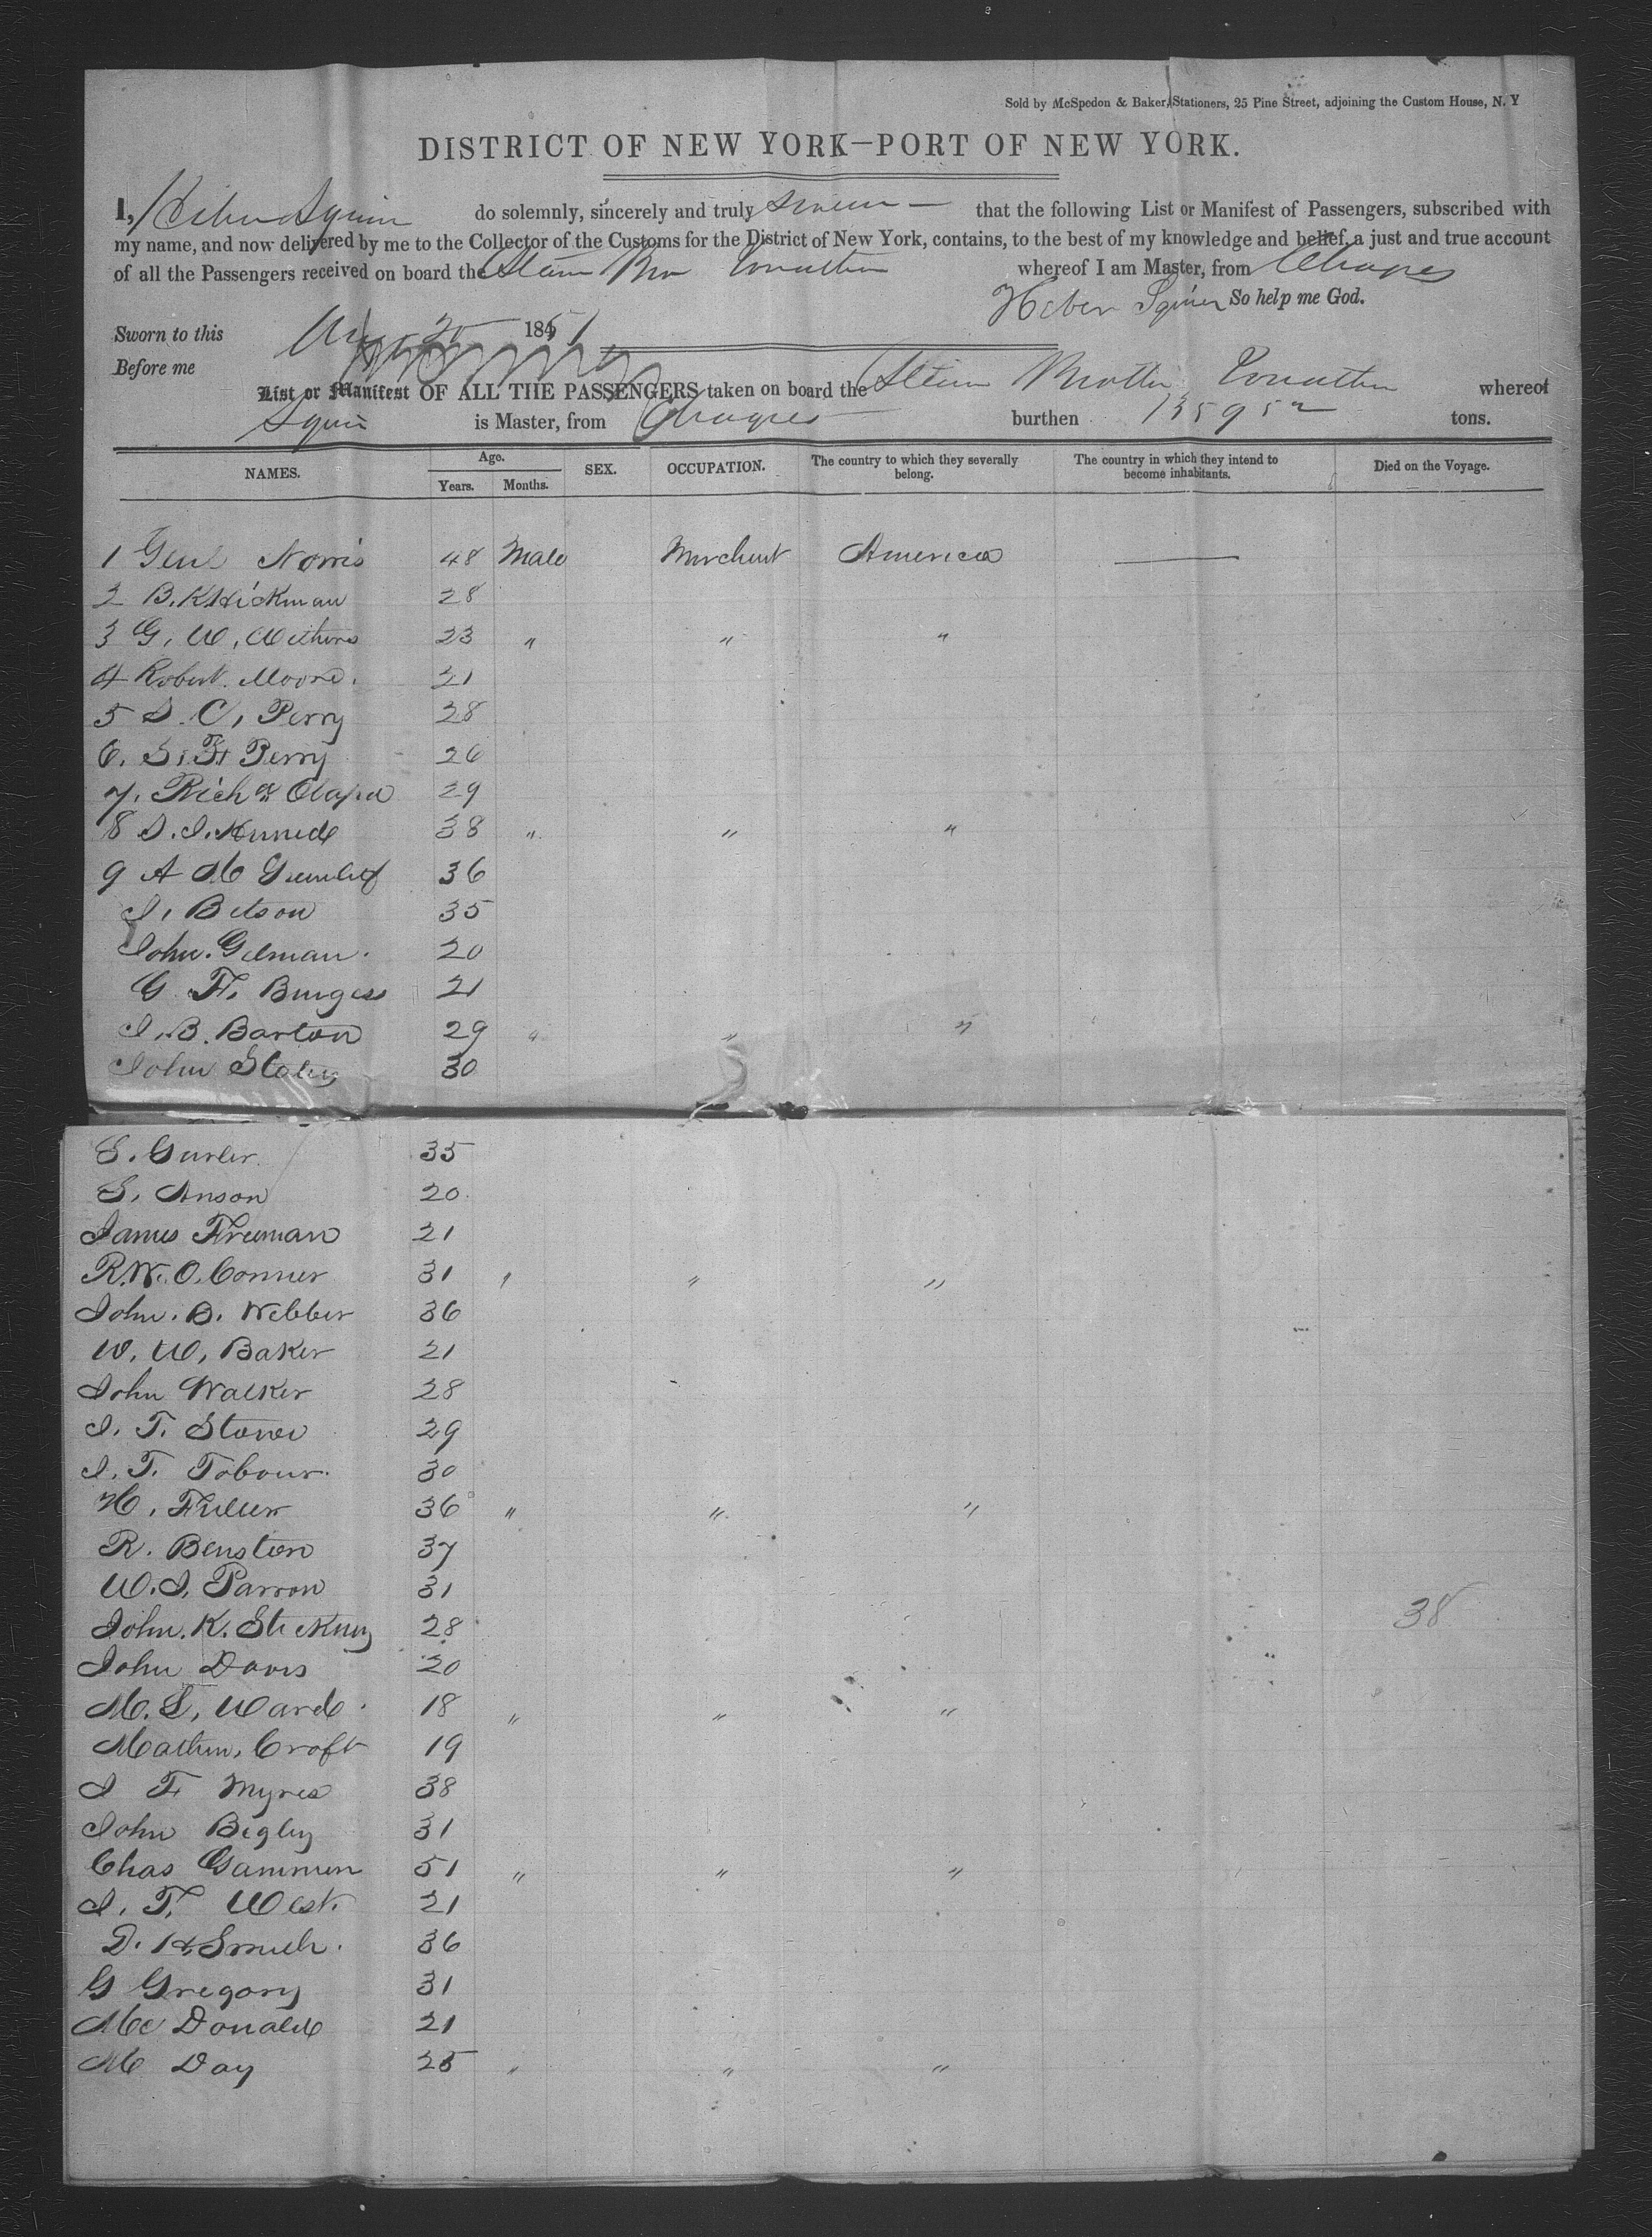 Sold by McSpedon & Baker, Stationers, 25 Pine Street, adjoining the Custom House, N. Y
DISTRICT OF NEW YORK—PORT OF NEW YORK.
I, Heber Squier do solemnly, sincerely and truly swear — that the following List or Manifest of Passengers, subscribed with
my name, and now delivered by me to the Collector of the Customs for the District of New York, contains, to the best of my knowledge and belief, a just and true account
of all the Passengers received on board the Steam Bro Jonathan whereof I am Master, from Chagres
Heber Squier So help me God.
Sworn to this Aug 25 1851
Before me
List or Manifest OF ALL THE PASSENGERS taken on board the Steam Brother Jonathan whereof
Squier is Master, from Chagres burthen 1359 52 tons.
NAMES. Age. Years. Months. SEX. OCCUPATION. The country to which they severally belong. The country in which they intend to become inhabitants. Died on the Voyage.
1 Genl Norris 48 Male Merchant America —
2 B. K Hickman 28
3 G. W. Withers 23 " " "
4 Robert Moore. 21
5 S. C, Perry 28
6. S. F. Perry 26
7. Rich 29
8 S. J. 38 " " "
9 A M 36
J, Betson 35
John. Gelman. 20
G F. Burgess 21
J. B. Barton 29 " " "
John Staley 30
S. Gurler. 35
S. Anson 20.
James Freeman 21
R. W. O. Conner 31 " " "
John. B. Webber 36
W. W, Baker 21
John Walker 28
J. T. Stover 29
J. T. Tobour. 30
H. Fuller 36 " " "
R. Benston 37
W. J. Parron 31
John. K. Stickney 28 38
John Davis 20
M. L, Ward. 18 " " "
Mathew, Croft 19
J F Myres 38
John Begley 31
Chas Gammon 51 " " "
J. T. West. 21
D. H. Smith. 36
G Gregory 31
Mc Donald 21
M Day 25 " " "